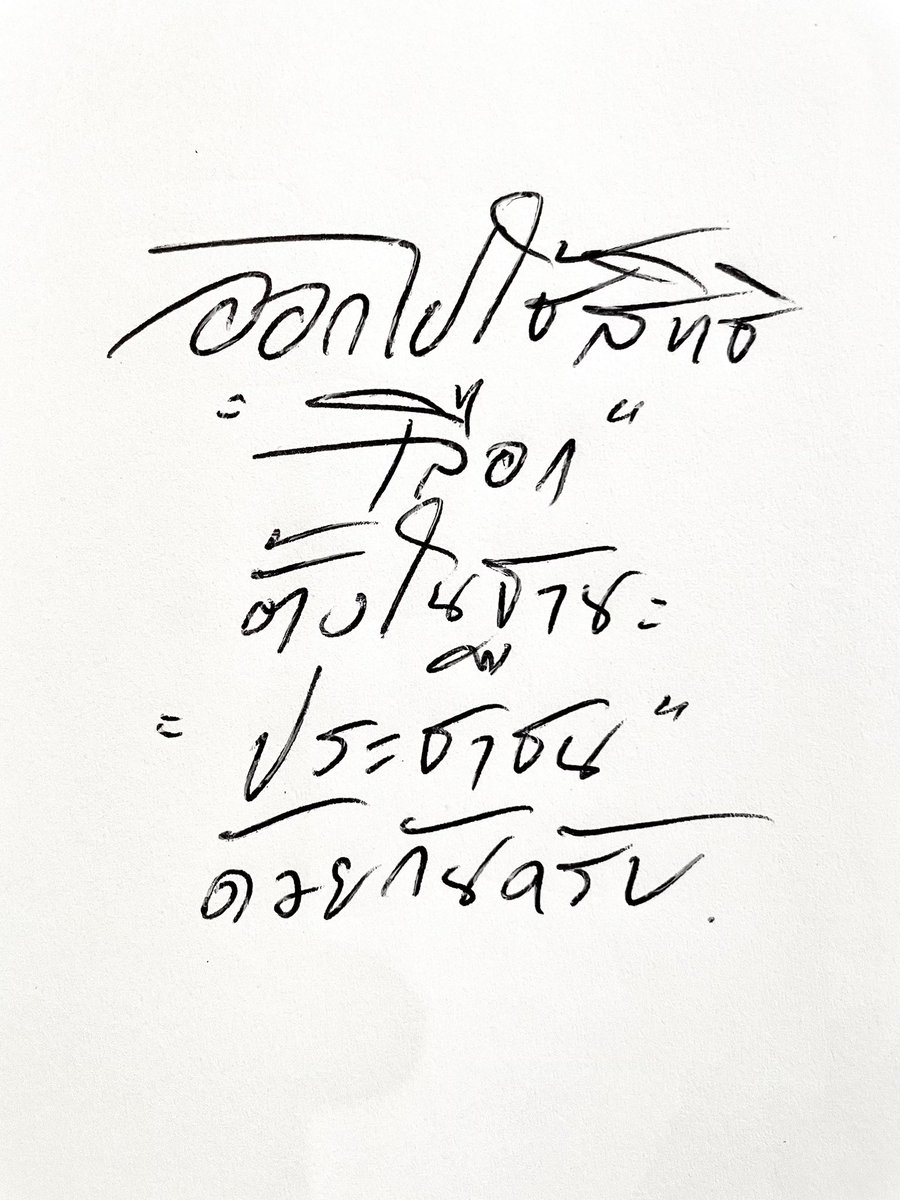 ออกไปใช้สิทธิ
"เลือก"
ตั้งในฐานะ
"ประชาชน"
ด้วยกันครับ.